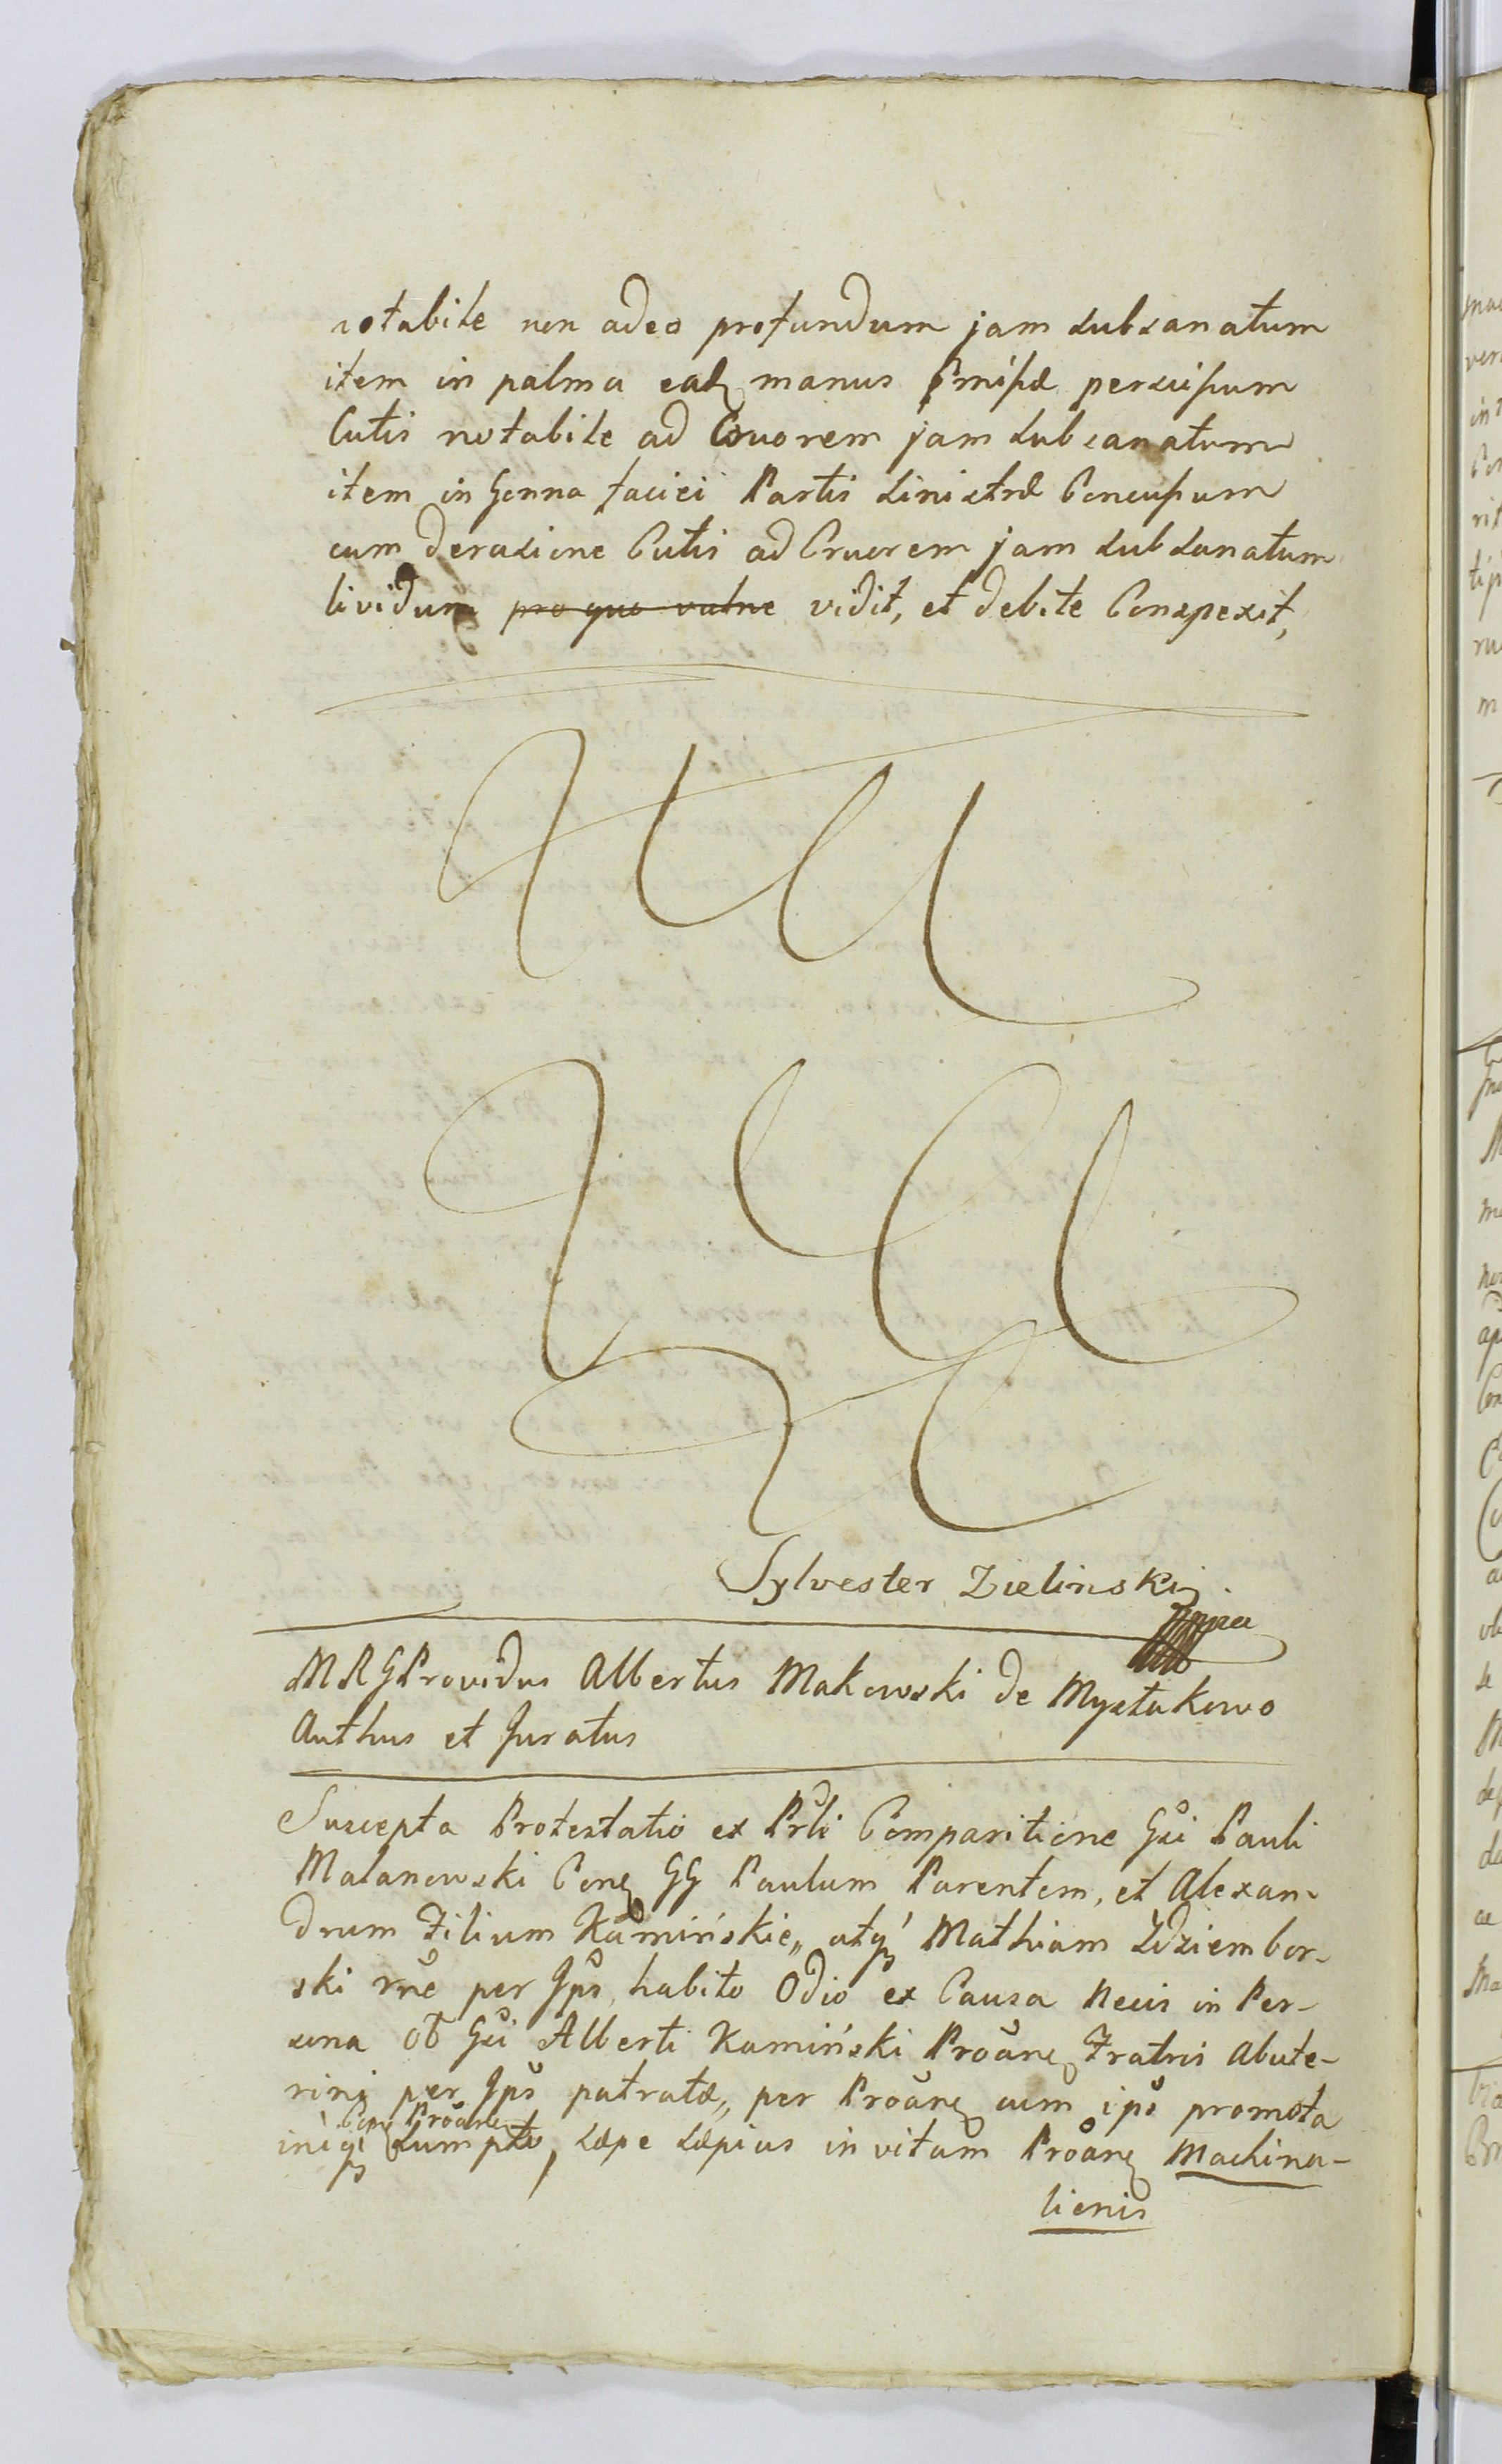 notabile non adeo profundum jam subsanatum
item in palma eadꝫ manus percussum
Cutis notabile ad Cruorem jam subsanatum
item in Genna faciei Partis sinistræ Concussum
cum derasione Cutis ad Cruorem jam subsanatum
lividum pro quo vulne vidit, et debite Conspexit,
Sylvester Zielinski
mpa
MRG Providus Albertus Makowski de Mystkowo
Authus et Juratus
Suscepta Protestatio ex Prli Comparitione Gsi Pauli
Malanowski Conꝫ GG Paulum Parentem, et Alexan-
drum Filium Kamińskie, atqꝫ Mathiam Zdziembor-
ski rne per Ips habito Odio ex Causa Necis in Per-
sona Ob Gsi Alberti Kamiński Proanꝫ Fratris abute-
rini per Ips patratæ, per Proanꝫ cum ips promota
Conꝫ Proanꝫ
iniqꝫ sumpto, sæpe sæpius in vitam Proanꝫ Machina-
tionis